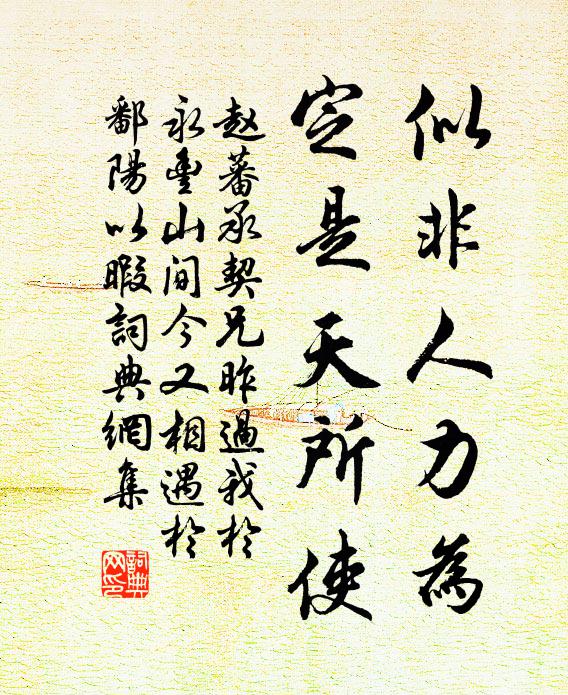 似非人力為
定是天所使
赵蕃承契兄昨過我於
永豊山间今又相遇於
鄱陽以暇詞典網集
詞典网印